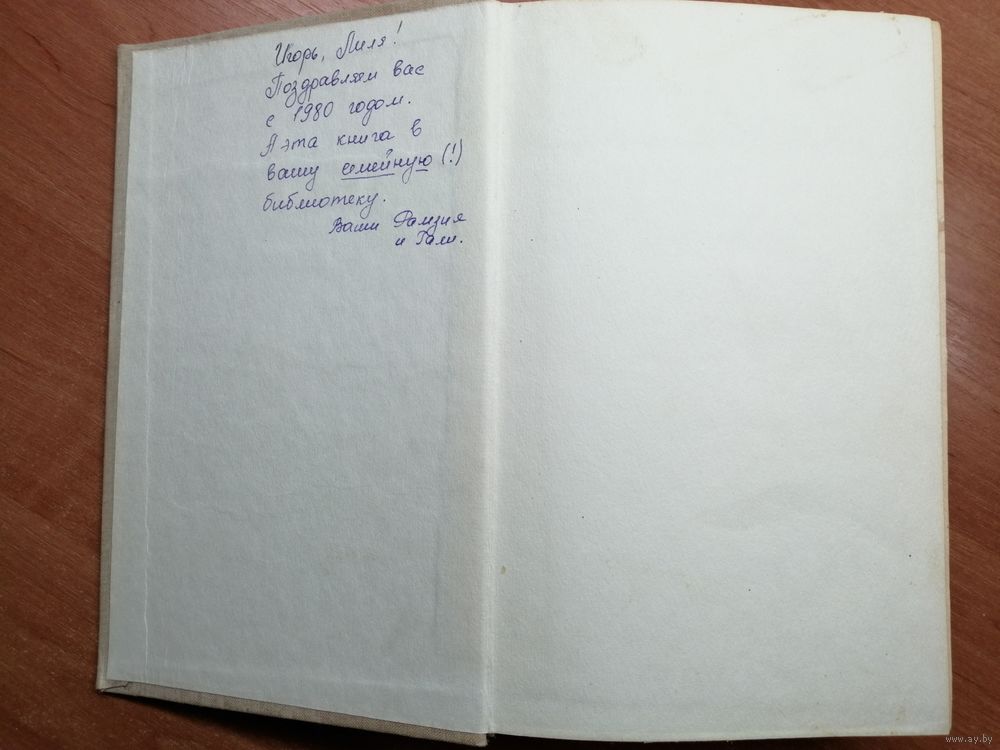 Игорь, Лиля!
Поздравляем вас
с 1980 годом.
А эта книга в
вашу семейную (!)
библиотеку.
Ваши Рамзия
и Гали.
www.ay.by